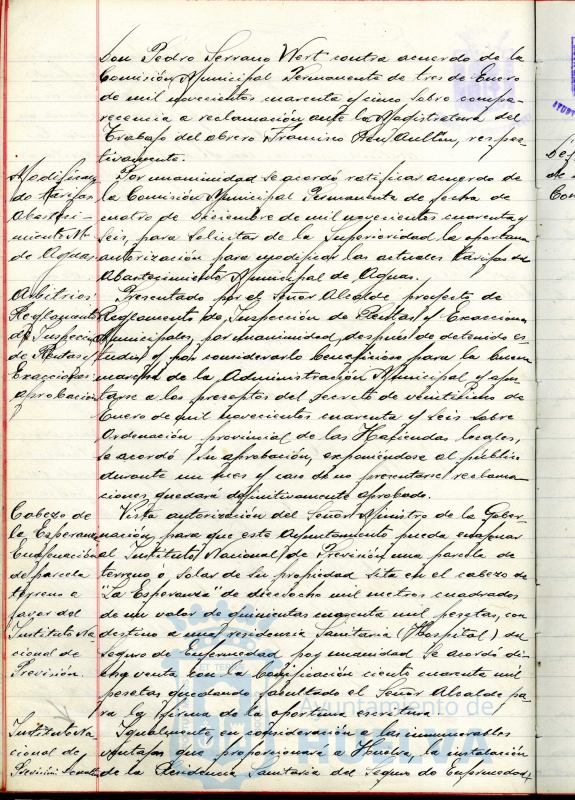 Don Pedro Serrano Wert contra acuerdo de la
Comisión Municipal Permanente de tres de Enero
de mil novecientos cuarenta y cinco sobre compa-
recencia a reclamación ante la Magistratura del
Trabajo del obrero Francisco, respec-
tivamente.
Modifican-
do tarifas
Abasteci-
miento M.
de Aguas
Por unanimidad se acordó ratificar acuerdo de
la Comisión Municipal Permanente de fecha de
cuatro de Diciembre de mil novecientos cuarenta y
seis, para solicitar de la Superioridad la oportuna
autorización para modificar las actuales tarifas del
Abastecimiento Municipal de Aguas.
Arbitrios
Reglamento
de Inspección
de Rentas y
Exacciones
aprobación
Presentado por el Señor Alcalde proyecto de
Reglamento de Inspección de Rentas y Exacciones
Municipales, por unanimidad, después de detenido es-
tudio y por considerarlo beneficioso para la buena
marcha de la Administración Municipal y ajus-
tarse a los preceptos del decreto de veinticinco de
Enero de mil novecientos cuarenta y seis sobre
Ordenación provincial de las Haciendas locales,
se acordó su aprobación, exponiéndose al público
durante un mes y caso de no presentarse reclama-
ciones quedará definitivamente aprobado.
Cabezo de
la Esperanza
Enajenación
de parcela
terreno a
favor del
Instituto Na-
cional de
Previsión.
Vista autorización del Señor Ministro de la Gober-
nación, para que este Ayuntamiento pueda enajenar
al Instituto Nacional de Previsión una parcela de
terreno o solar de su propiedad sita en el cabezo de
"La Esperanza" de dieciocho mil metros cuadrados
de un valor de quinientas cuarenta mil pesetas, con
destino a una residencia Sanitaria (Hospital) del
Seguro de Enfermedad por unanimidad se acordó
venta con la bonificación ciento cuarenta mil
pesetas quedando facultado el Señor Alcalde pa-
ra la firma de la oportuna escritura
Instituto Na-
cional de
Previsión
Igualmente en consideración a las innumerables
ventajas que proporcionará a Huelva, la instalación
de la Residencia Sanitaria del Seguro de Enfermedad
Ayuntamiento de
HUELVA